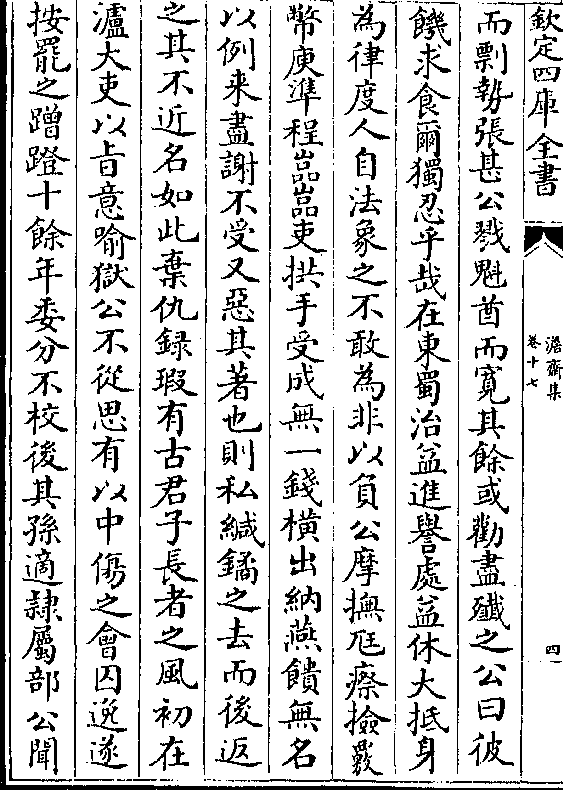 欽定四庫全書
澹齋集
卷十七
四
而剽勢張甚公戮魁酋而寛其餘或勸盡殲之公曰彼
饑求食爾獨忍乎哉在東蜀治益進譽處益休大抵身
為律度人自法象之不敢為非以負公摩撫尫瘵撿覈
幣庾準程嵓嵓吏拱手受成無一錢横出納燕饋無名
以例来盡謝不受又惡其著也則私緘鐍之去而後返
之其不近名如此棄仇録瑕有古君子長者之風初在
瀘大吏以㫖意喻獄公不從思有以中傷之會囚逸遂
按罷之蹭蹬十餘年委分不校後其孫適隷屬部公聞